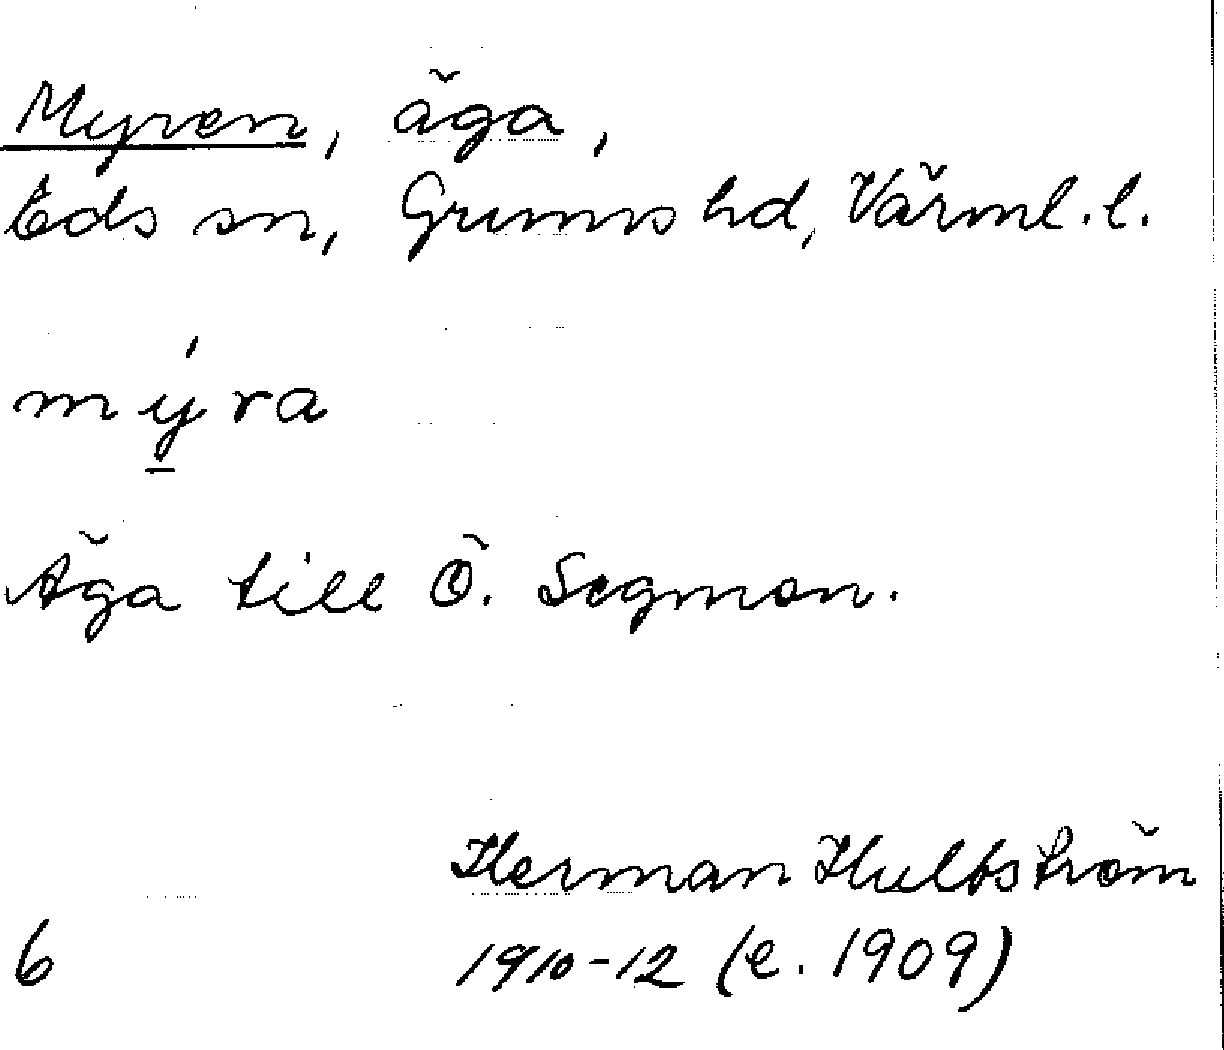 Myren, äga,
Eds sn, Grums hd, Värml. l.
mý̠ra
Äga till Ö. Segmon.
Herman Hultström
6 1910-12 (e. 1909)